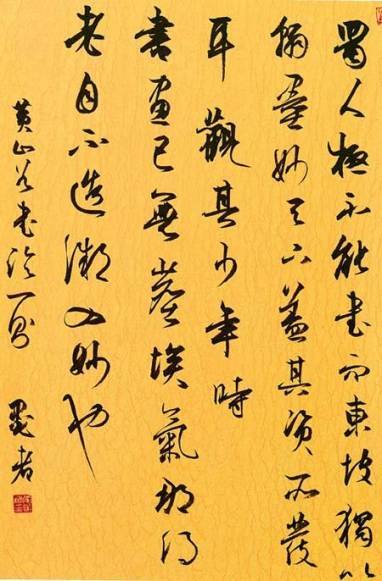 蜀人極不能書而東坡獨以
翰墨妙天下蓋其資所發
耳觀其少年時
書畫已無塵埃氣那得
老自不造微入妙也
黃山谷書論一則